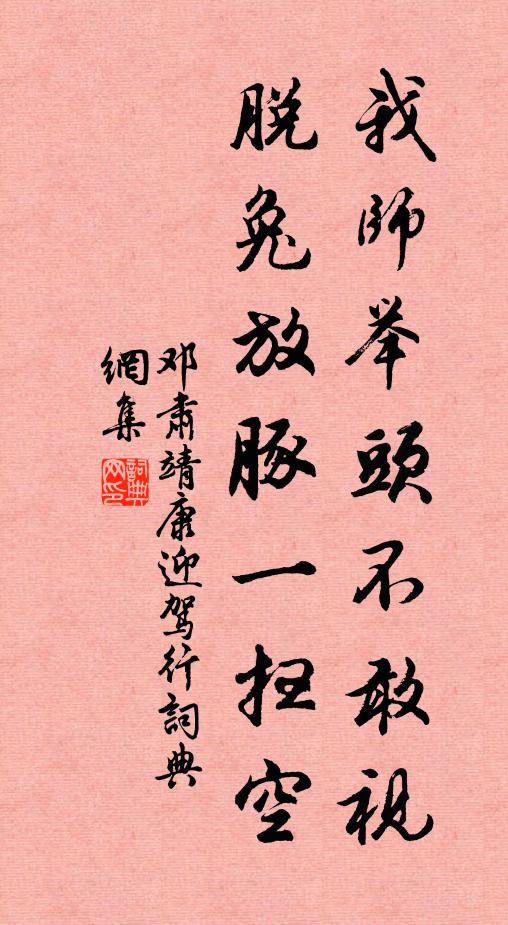 我師举頭不敢視
脱兔放豚一扫空
邓肃靖康迎驾行詞典
網集
詞典网印